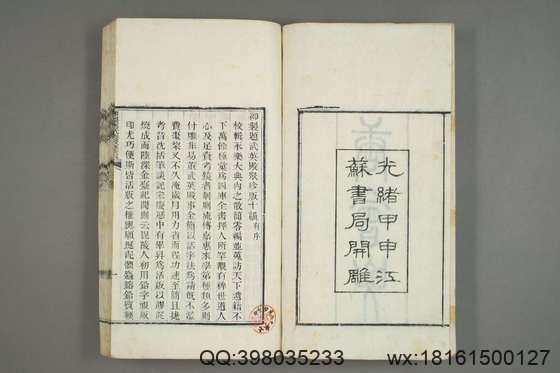 光緒甲申江
蘇書局開雕
御製題武英殿聚珍版十韻有序
校輯永樂大典內之散簡零編並蒐訪天下遺籍不
下萬餘種彙為四庫全書擇人所罕覯有裨世道人
心及足資考鏡者剞劂流傳嘉惠來學第種類多則
付雕非易董武英殿事金簡以活字法為請既不濫
費棗棃又不久淹歲月用力省而程功速至簡且捷
考昔沈括筆談記宋慶曆中有畢昇為活版以膠泥
燒成而陸深金臺紀聞則云毘陵人初用鉛字視板
印尤巧便斯皆活版之權輿顧埏泥體麤鎔鉛質輭
QQ:398035233
wx:18161500127